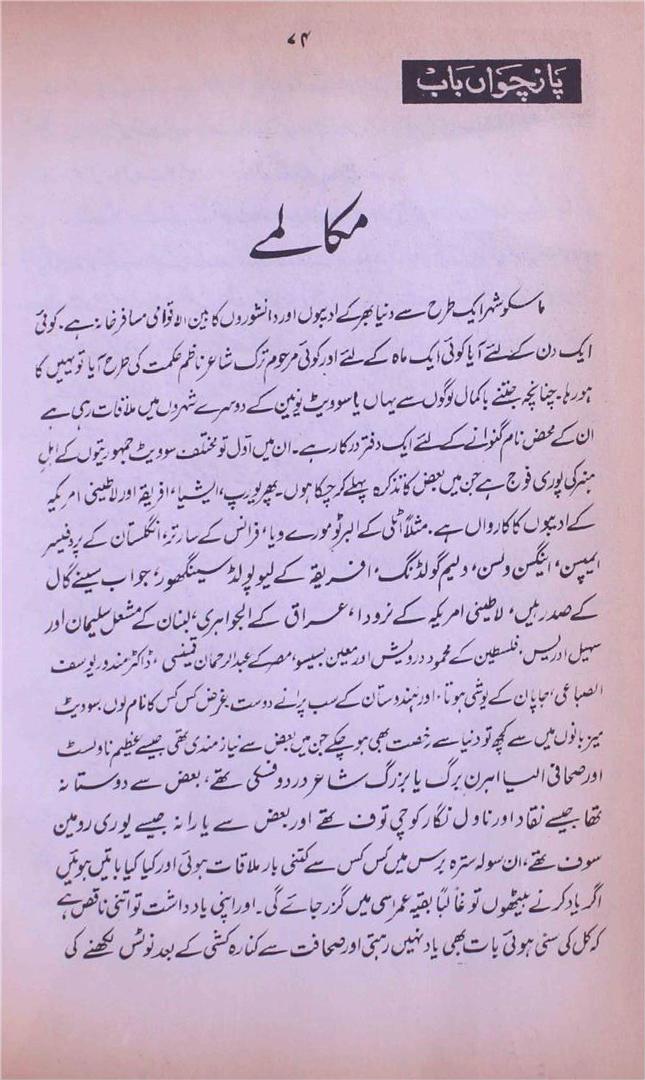 ۷۴
پَانچوَاں بَابْ
مکالمے
ماسکو شہر ایک طرح سے دنیا بھر کے ادیبوں اور دانشوروں کا بین الاقوامی مسافر خانہ ہے۔ کوئی
ایک دن کے لئے آیا کوئی ایک ماہ کے لئے اور کوئی مرحوم ترک شاعر ناظم حکمت کی طرح آیا تو یہیں کا
ہو رہا۔ چنانچہ جتنے باکمال لوگوں سے یہاں یا سوویٹ یونین کے دوسرے شہروں میں ملاقات رہی ہے
ان کے محض نام گنوانے کے لئے ایک دفتر درکار ہے۔ ان میں اول تو مختلف سوویٹ جمہوریتوں کے اہلِ
ہنر کی پوری فوج ہے جن میں بعض کا تذکرہ پہلے کر چکا ہوں۔ پھر یورپ، ایشیا، افریقہ اور لاطینی امریکہ
کے ادیبوں کا کارواں ہے۔ مثلاً اٹلی کے البرٹو مورے ویا، فرانس کے سارتر، انگلستان کے پروفیسر
ایمپسن، اینگس ولسن، ولیم گولڈنگ، افریقہ کے لیوپولڈ سینگھور، جو اب سینے گال
کے صدر ہیں، لاطینی امریکہ کے نرودا، عراق کے الجواہری، لبنان کے مشعل سلیمان اور
سہیل ادریس، فلسطین کے محمود درویش اور معین بسیسو، مصر کے عبدالرحمان قمیسی، ڈاکٹر مندور یوسف
الصباعی، جاپان کے یوشی ہوتا، اور ہندوستان کے سب پرانے دوست، غرض کس کس کا نام لوں۔ سوویٹ
میزبانوں میں سے کچھ تو دنیا سے رخصت بھی ہو چکے جن میں بعض سے نیاز مندی تھی جیسے عظیم ناولسٹ
اور صحافی ایلیا اہرن برگ یا بزرگ شاعر دردوفسکی تھے، بعض سے دوستانہ
تھا جیسے نقاد اور ناول نگار کوچی توف تھے اور بعض سے یارانہ جیسے یوری رومین
سوف تھے، ان سولہ سترہ برس میں کس کس سے کتنی بار ملاقات ہوئی اور کیا کیا باتیں ہوئیں
اگر یاد کرنے بیٹھوں تو غالباً بقیہ عمر اسی میں گزر جائے گی۔ اور اپنی یادداشت تو اتنی ناقص ہے
کہ کل کی سنی ہوئی بات بھی یاد نہیں رہتی اور صحافت سے کنارہ کشی کے بعد نوٹس لکھنے کی